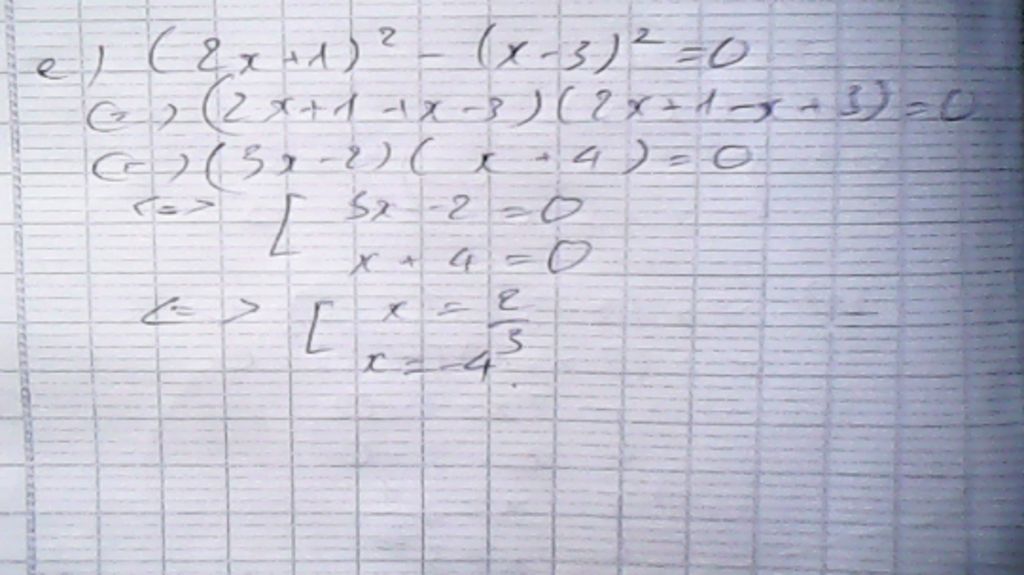 e) (2x+1)² - (x-3)² = 0
<=> (2x+1+x-3)(2x+1-x+3) = 0
<=> (3x-2)(x+4) = 0
<=> [ 3x-2 = 0
x+4 = 0
<=> [ x = 2/3
x = -4.